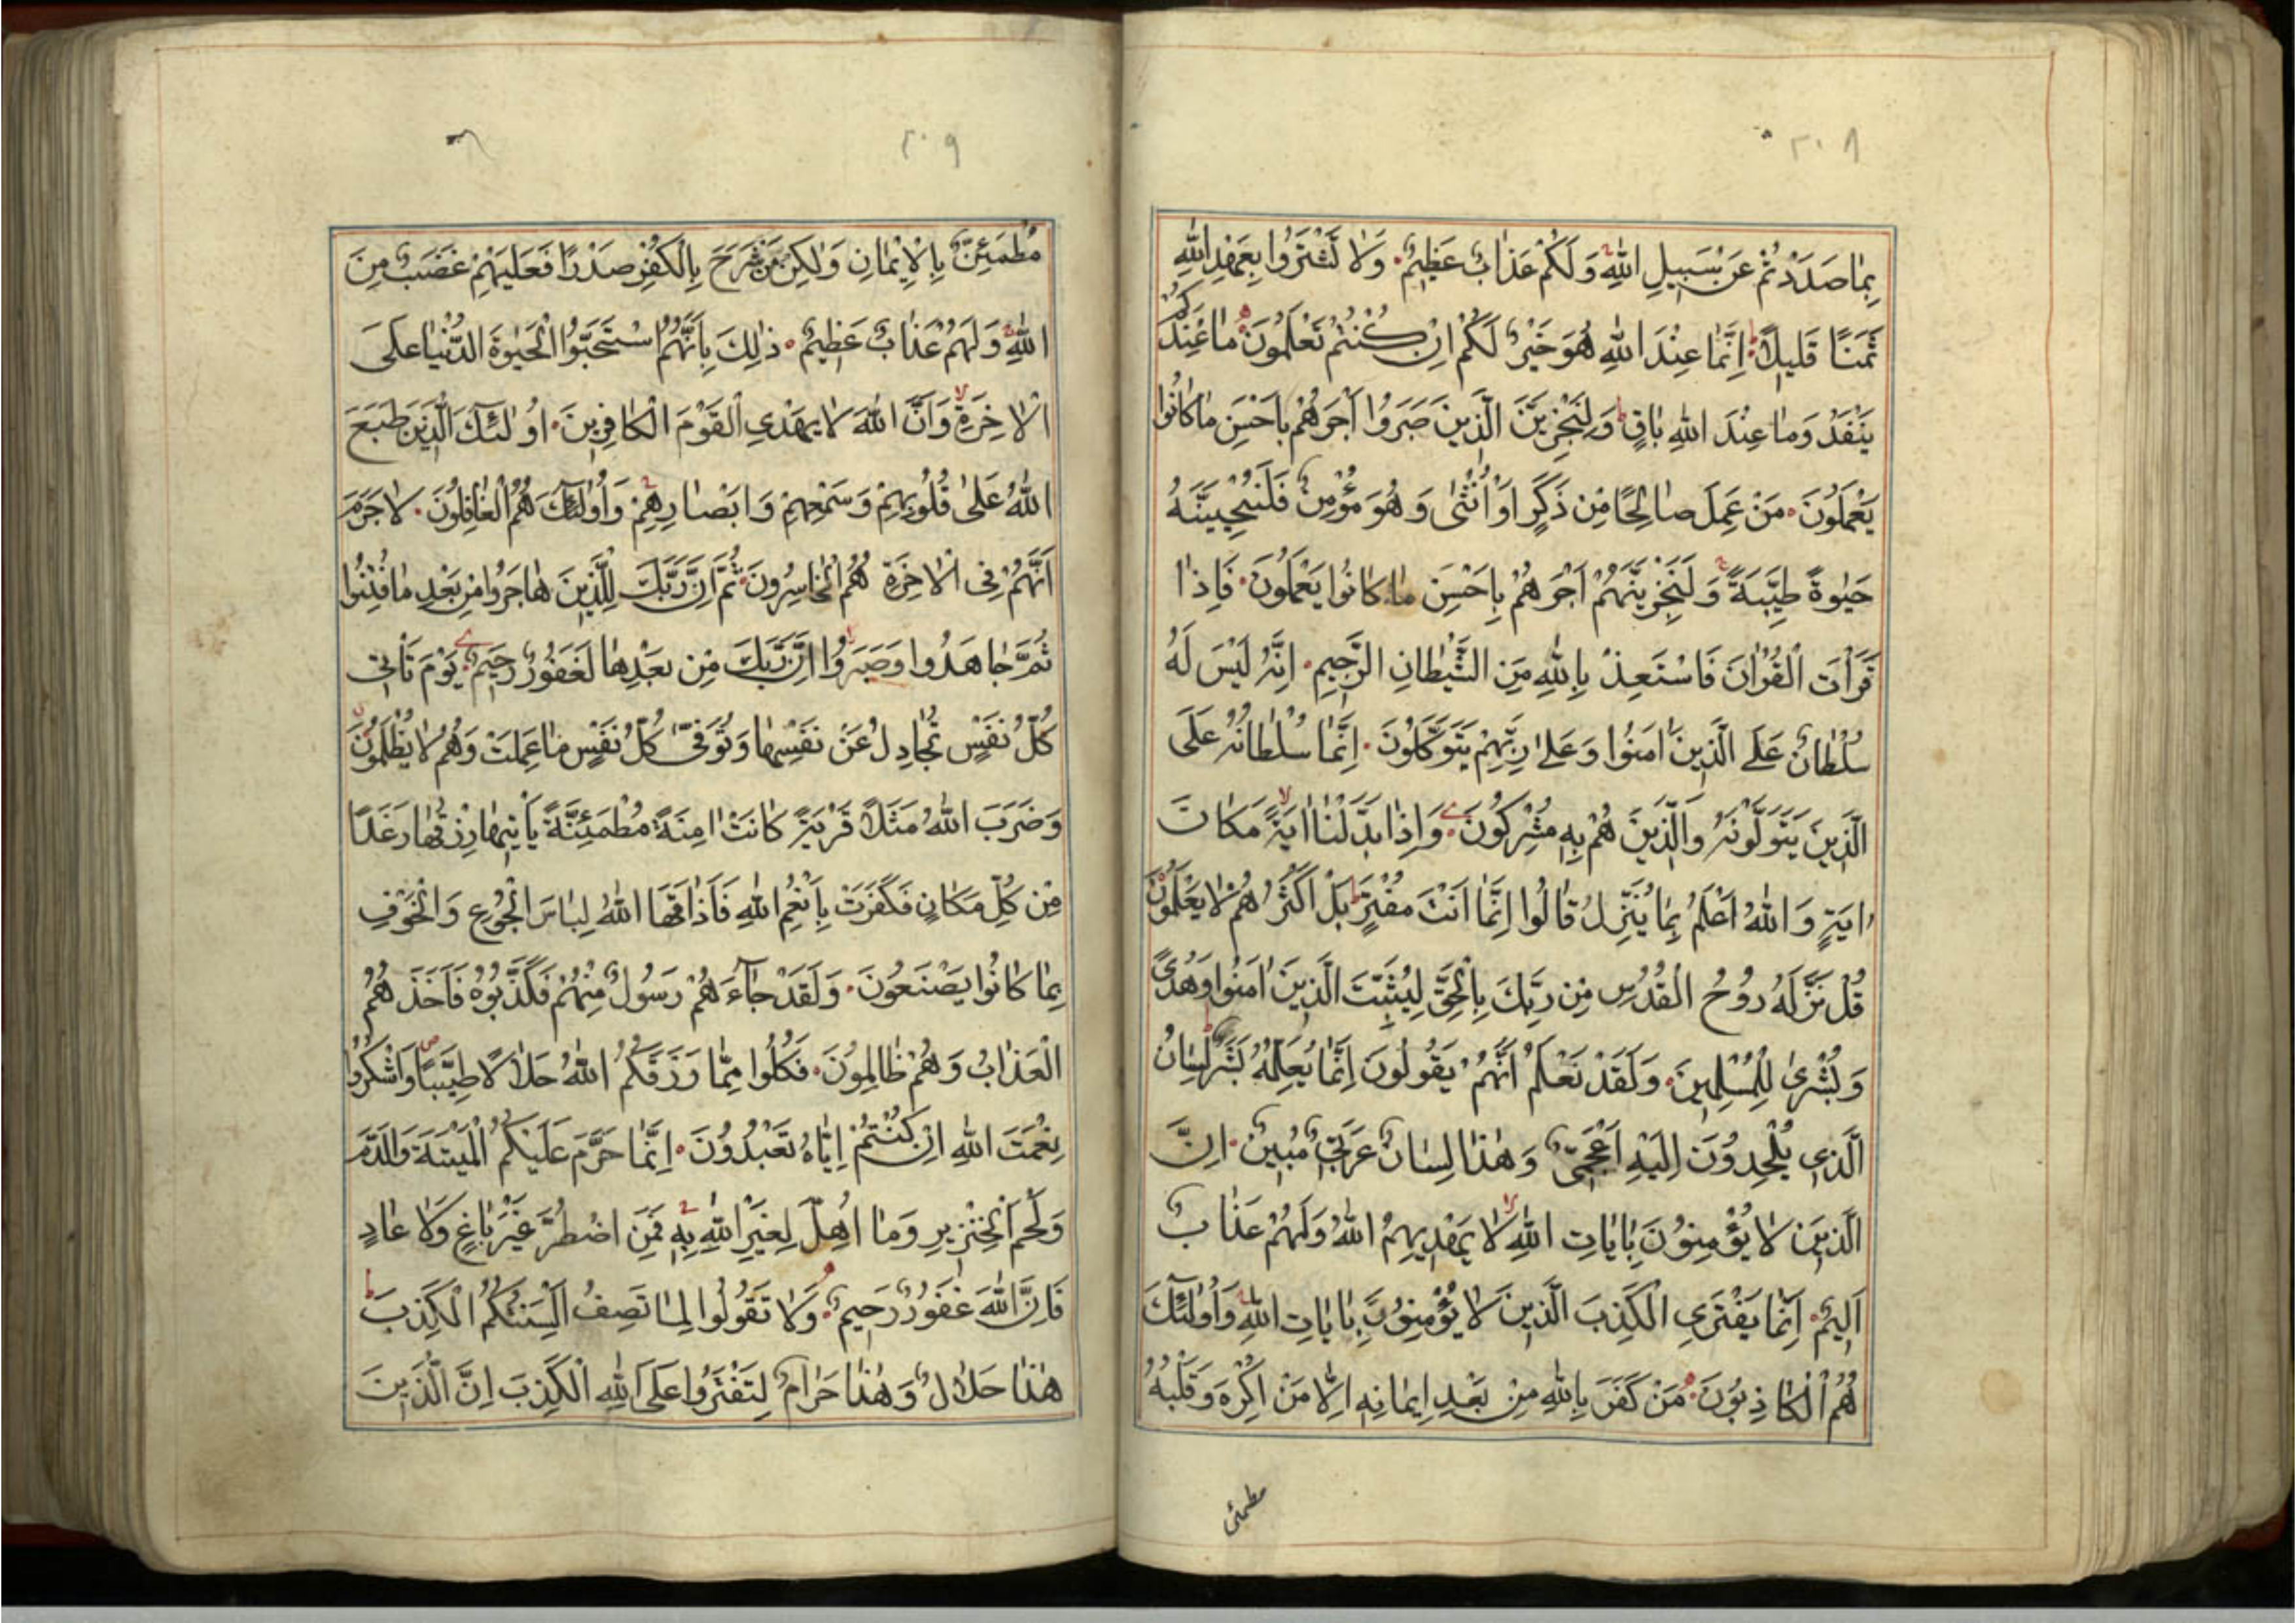 ٢٠٨
بِمَا صَدَدْتُمْ عَنْ سَبِيلِ اللهِ وَلَكُمْ عَذَابٌ عَظِيمٌ وَلَا تَشْتَرُوا بِعَهْدِ اللهِ
ثَمَنًا قَلِيلًا اِنَّمَا عِنْدَ اللهِ هُوَ خَيْرٌ لَكُمْ اِنْ كُنْتُمْ تَعْلَمُونَ مَا عِنْدَكُمْ
يَنْفَدُ وَمَا عِنْدَ اللهِ بَاقٍ وَلَنَجْزِيَنَّ الَّذِينَ صَبَرُوا اَجْرَهُمْ بِاَحْسَنِ مَا كَانُوا
يَعْمَلُونَ مَنْ عَمِلَ صَالِحًا مِنْ ذَكَرٍ اَوْ اُنْثٰى وَهُوَ مُؤْمِنٌ فَلَنُحْيِيَنَّهُ
حَيٰوةً طَيِّبَةً وَلَنَجْزِيَنَّهُمْ اَجْرَهُمْ بِاَحْسَنِ مَا كَانُوا يَعْمَلُونَ فَاِذَا
قَرَأْتَ الْقُرْاٰنَ فَاسْتَعِذْ بِاللهِ مِنَ الشَّيْطَانِ الرَّجِيمِ اِنَّهُ لَيْسَ لَهُ
سُلْطَانٌ عَلَى الَّذِينَ اٰمَنُوا وَعَلٰى رَبِّهِمْ يَتَوَكَّلُونَ اِنَّمَا سُلْطَانُهُ عَلَى
الَّذِينَ يَتَوَلَّوْنَهُ وَالَّذِينَ هُمْ بِهِ مُشْرِكُونَ وَاِذَا بَدَّلْنَا اٰيَةً مَكَانَ
اٰيَةٍ وَاللهُ اَعْلَمُ بِمَا يُنَزِّلُ قَالُوا اِنَّمَا اَنْتَ مُفْتَرٍ بَلْ اَكْثَرُهُمْ لَا يَعْلَمُونَ
قُلْ نَزَّلَهُ رُوحُ الْقُدُسِ مِنْ رَبِّكَ بِالْحَقِّ لِيُثَبِّتَ الَّذِينَ اٰمَنُوا وَهُدًى
وَبُشْرٰى لِلْمُسْلِمِينَ وَلَقَدْ نَعْلَمُ اَنَّهُمْ يَقُولُونَ اِنَّمَا يُعَلِّمُهُ بَشَرٌ لِسَانُ
الَّذِي يُلْحِدُونَ اِلَيْهِ اَعْجَمِيٌّ وَهٰذَا لِسَانٌ عَرَبِيٌّ مُبِينٌ اِنَّ
الَّذِينَ لَا يُؤْمِنُونَ بِاٰيَاتِ اللهِ لَا يَهْدِيهِمُ اللهُ وَلَهُمْ عَذَابٌ
اَلِيمٌ اِنَّمَا يَفْتَرِي الْكَذِبَ الَّذِينَ لَا يُؤْمِنُونَ بِاٰيَاتِ اللهِ وَاُولٰئِكَ
هُمُ الْكَاذِبُونَ مَنْ كَفَرَ بِاللهِ مِنْ بَعْدِ اِيمَانِهِ اِلَّا مَنْ اُكْرِهَ وَقَلْبُهُ
مطمئن
٢٠٩
مُطْمَئِنٌّ بِالْاِيْمَانِ وَلٰكِنْ مَنْ شَرَحَ بِالْكُفْرِ صَدْرًا فَعَلَيْهِمْ غَضَبٌ مِنَ
اللهِ وَلَهُمْ عَذَابٌ عَظِيمٌ ذٰلِكَ بِاَنَّهُمُ اسْتَحَبُّوا الْحَيٰوةَ الدُّنْيَا عَلَى
الْاٰخِرَةِ وَاَنَّ اللهَ لَا يَهْدِي الْقَوْمَ الْكَافِرِينَ اُولٰئِكَ الَّذِينَ طَبَعَ
اللهُ عَلٰى قُلُوبِهِمْ وَسَمْعِهِمْ وَاَبْصَارِهِمْ وَاُولٰئِكَ هُمُ الْغَافِلُونَ لَا جَرَمَ
اَنَّهُمْ فِي الْاٰخِرَةِ هُمُ الْخَاسِرُونَ ثُمَّ اِنَّ رَبَّكَ لِلَّذِينَ هَاجَرُوا مِنْ بَعْدِ مَا فُتِنُوا
ثُمَّ جَاهَدُوا وَصَبَرُوا اِنَّ رَبَّكَ مِنْ بَعْدِهَا لَغَفُورٌ رَحِيمٌ يَوْمَ تَأْتِي
كُلُّ نَفْسٍ تُجَادِلُ عَنْ نَفْسِهَا وَتُوَفّٰى كُلُّ نَفْسٍ مَا عَمِلَتْ وَهُمْ لَا يُظْلَمُونَ
وَضَرَبَ اللهُ مَثَلًا قَرْيَةً كَانَتْ اٰمِنَةً مُطْمَئِنَّةً يَأْتِيهَا رِزْقُهَا رَغَدًا
مِنْ كُلِّ مَكَانٍ فَكَفَرَتْ بِاَنْعُمِ اللهِ فَاَذَاقَهَا اللهُ لِبَاسَ الْجُوعِ وَالْخَوْفِ
بِمَا كَانُوا يَصْنَعُونَ وَلَقَدْ جَآءَهُمْ رَسُولٌ مِنْهُمْ فَكَذَّبُوهُ فَاَخَذَهُمُ
الْعَذَابُ وَهُمْ ظَالِمُونَ فَكُلُوا مِمَّا رَزَقَكُمُ اللهُ حَلَالًا طَيِّبًا وَاشْكُرُوا
نِعْمَتَ اللهِ اِنْ كُنْتُمْ اِيَّاهُ تَعْبُدُونَ اِنَّمَا حَرَّمَ عَلَيْكُمُ الْمَيْتَةَ وَالدَّمَ
وَلَحْمَ الْخِنْزِيرِ وَمَا اُهِلَّ لِغَيْرِ اللهِ بِهِ فَمَنِ اضْطُرَّ غَيْرَ بَاغٍ وَلَا عَادٍ
فَاِنَّ اللهَ غَفُورٌ رَحِيمٌ وَلَا تَقُولُوا لِمَا تَصِفُ اَلْسِنَتُكُمُ الْكَذِبَ
هٰذَا حَلَالٌ وَهٰذَا حَرَامٌ لِتَفْتَرُوا عَلَى اللهِ الْكَذِبَ اِنَّ الَّذِينَ